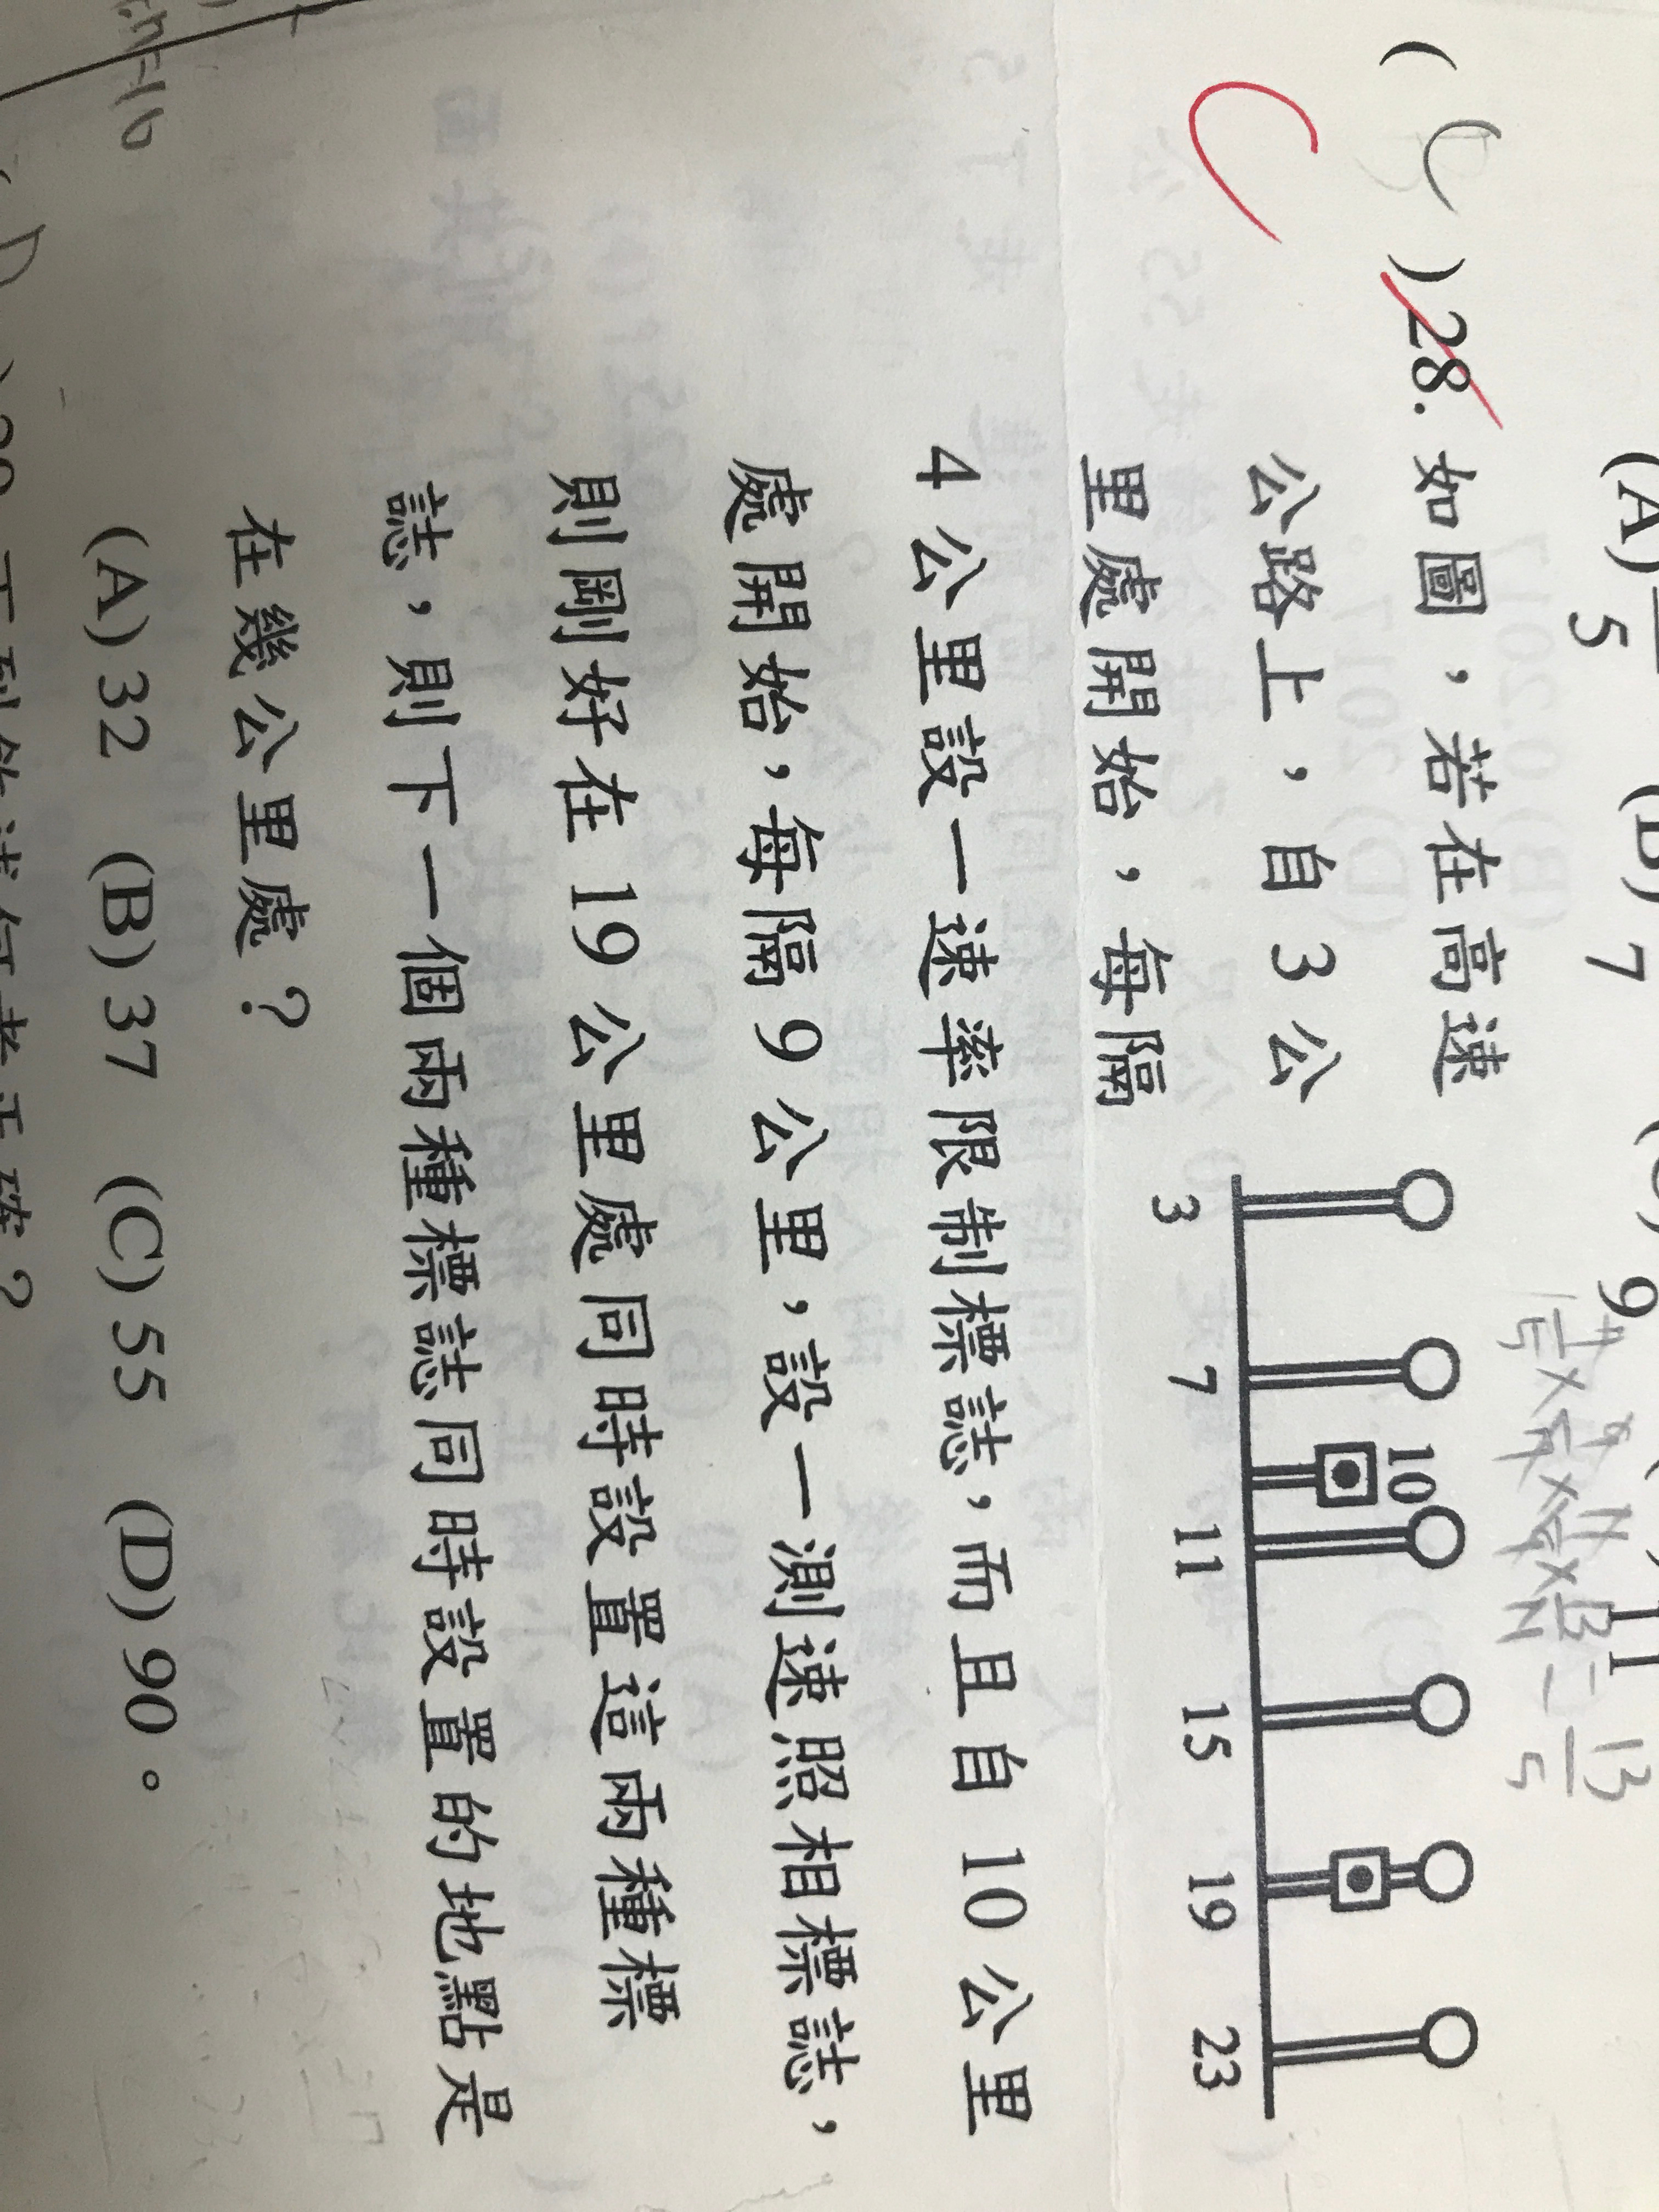 (A) 5 (B) 7 (C) 9 11
( C ) 28. 如圖，若在高速
公路上，自 3 公
里處開始，每隔
3 7 10 11 15 19 23
4 公里設一速率限制標誌，而且自 10 公里
處開始，每隔 9 公里，設一測速照相標誌，
則剛好在 19 公里處同時設置這兩種標
誌，則下一個兩種標誌同時設置的地點是
在幾公里處？
(A) 32 (B) 37 (C) 55 (D) 90。